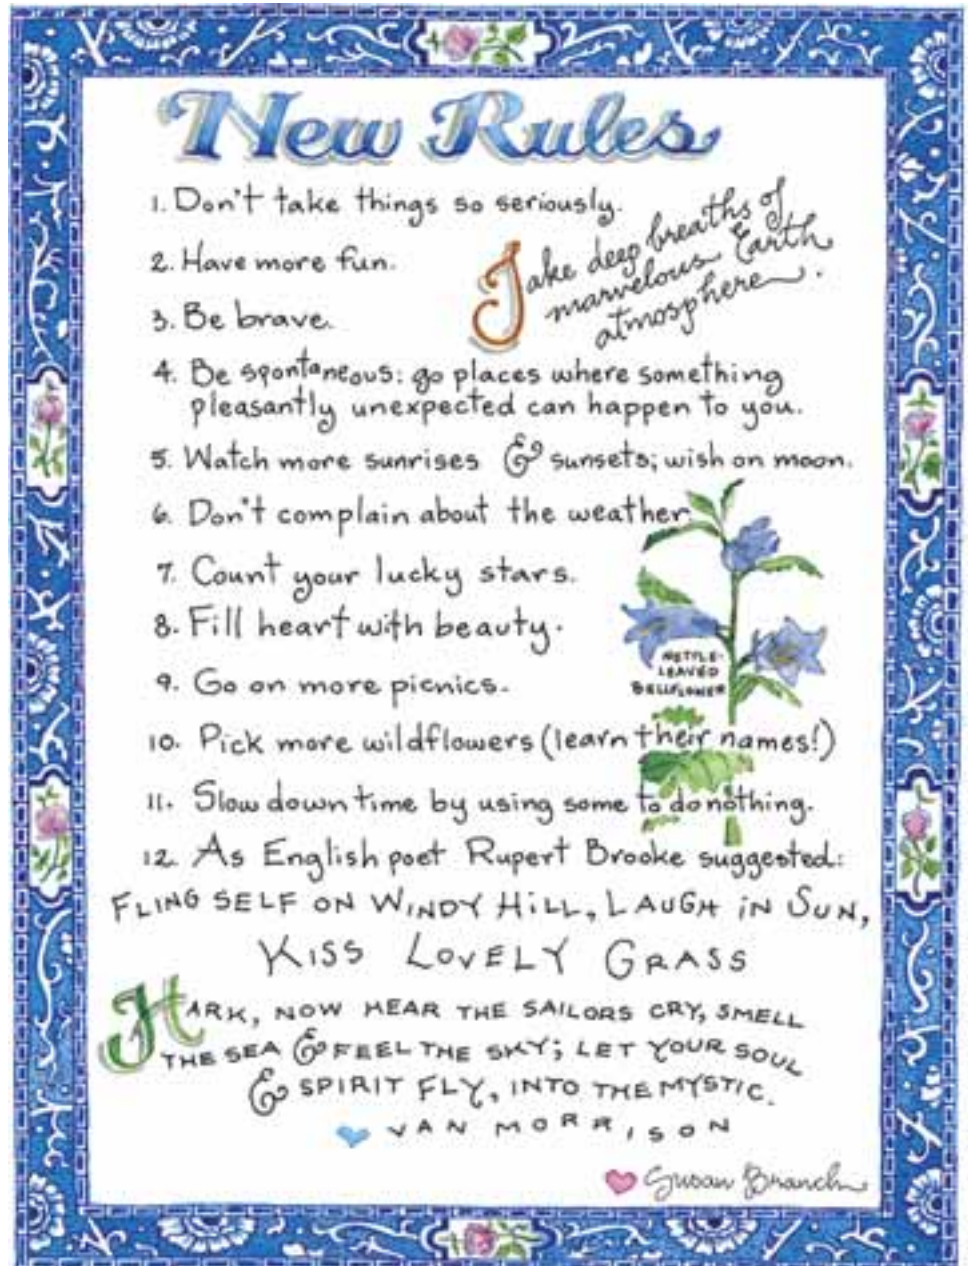 New Rules
1. Don't take things so seriously.
Take deep breaths of
marvelous Earth
atmosphere.
2. Have more fun.
3. Be brave.
4. Be spontaneous: go places where something
pleasantly unexpected can happen to you.
5. Watch more sunrises & sunsets; wish on moon.
6. Don't complain about the weather.
7. Count your lucky stars.
8. Fill heart with beauty.
NETTLE-
LEAVED
BELLFLOWER
9. Go on more picnics.
10. Pick more wildflowers (learn their names!)
11. Slow down time by using some to do nothing.
12. As English poet Rupert Brooke suggested:
FLING SELF ON WINDY HILL, LAUGH IN SUN,
KISS LOVELY GRASS
HARK, NOW HEAR THE SAILORS CRY, SMELL
THE SEA & FEEL THE SKY; LET YOUR SOUL
& SPIRIT FLY, INTO THE MYSTIC.
VAN MORRISON
Susan Branch